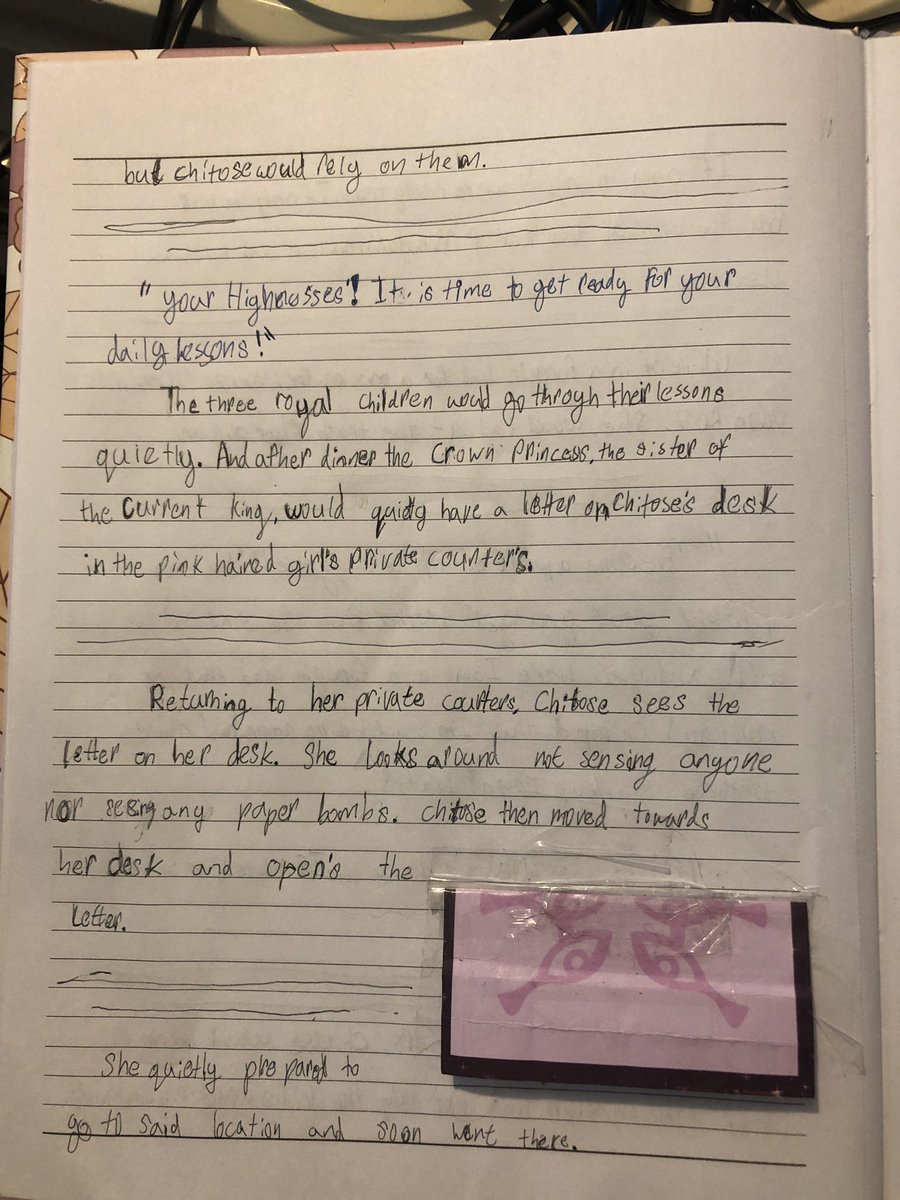 but chitose would rely on them.
"your Highnesses! It is time to get ready for your
daily lessons!"
The three royal children would go throygh their lessons
quietly. And afther dinner the Crown Princess, the sister of
the Current king, would have a letter on Chitose's desk
in the pink haired girl's private counter's.
Returning to her private counters, Chitose sees the
letter on her desk. She looks around not sensing anyone
nor seeing any paper bombs. Chitose then moved towards
her desk and open's the
letter.
She quietly prepared to
go to said location and soon went there.